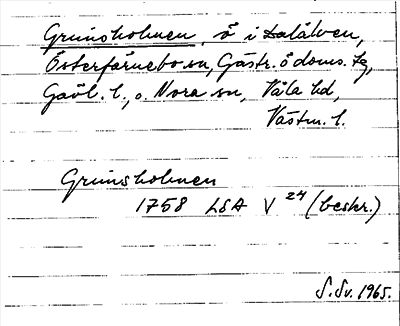 Grunsholmen, ö i Dalälven,
Österfärnebo sn, Gästr. ö doms. tg,
Gävl. l., o. Nora sn, Våla hd,
Västm. l.
Grunsholmen
1758 LSA V 24 (beskr.)
S. Sv. 1965.